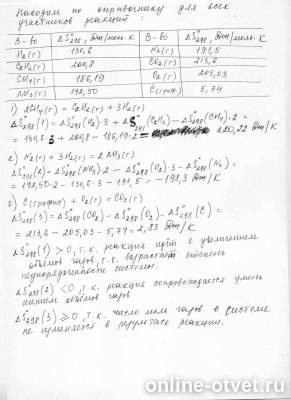 Находим по справочнику для всех
участников реакций :
В-во ΔS°298, Дж/моль.К В-во ΔS°298, Дж/моль.К
H2(г) 130,6 N2(г) 191,5
C2H2(г) 200,8 CO2(г) 213,6
CH4(г) 186,19 O2(г) 205,03
NH3(г) 192,50 C(граф.) 5,74
1) 2CH4(г) = C2H2(г) + 3H2(г)
ΔS°298(1) = ΔS°298(H2)·3 + ΔS°298(C2H2) - ΔS°298(CH4)·2 =
= 130,6·3 + 200,8 - 186,19·2 = 220,22 Дж/К
2) N2(г) + 3H2(г) = 2NH3(г)
ΔS°298(2) = ΔS°298(NH3)·2 - ΔS°298(H2)·3 - ΔS°298(N2) =
= 192,50·2 - 130,6·3 - 191,5 = -198,3 Дж/К
3) C(графит) + O2(г) = CO2(г)
ΔS°298(3) = ΔS°298(CO2) - ΔS°298(O2) - ΔS°298(C) =
= 213,6 - 205,03 - 5,74 = 2,83 Дж/К
ΔS°298(1) > 0, т.к. реакция идёт с увеличением
объёмов газов, т.е. возрастает степень
неупорядоченности системы.
ΔS°298(2) < 0, т.к. реакция сопровождается умень
шением объёмов газов
ΔS°298(3) ≥ 0, т.к. число моль газов в системе
не изменяется в результате реакции.
online-otvet.ru